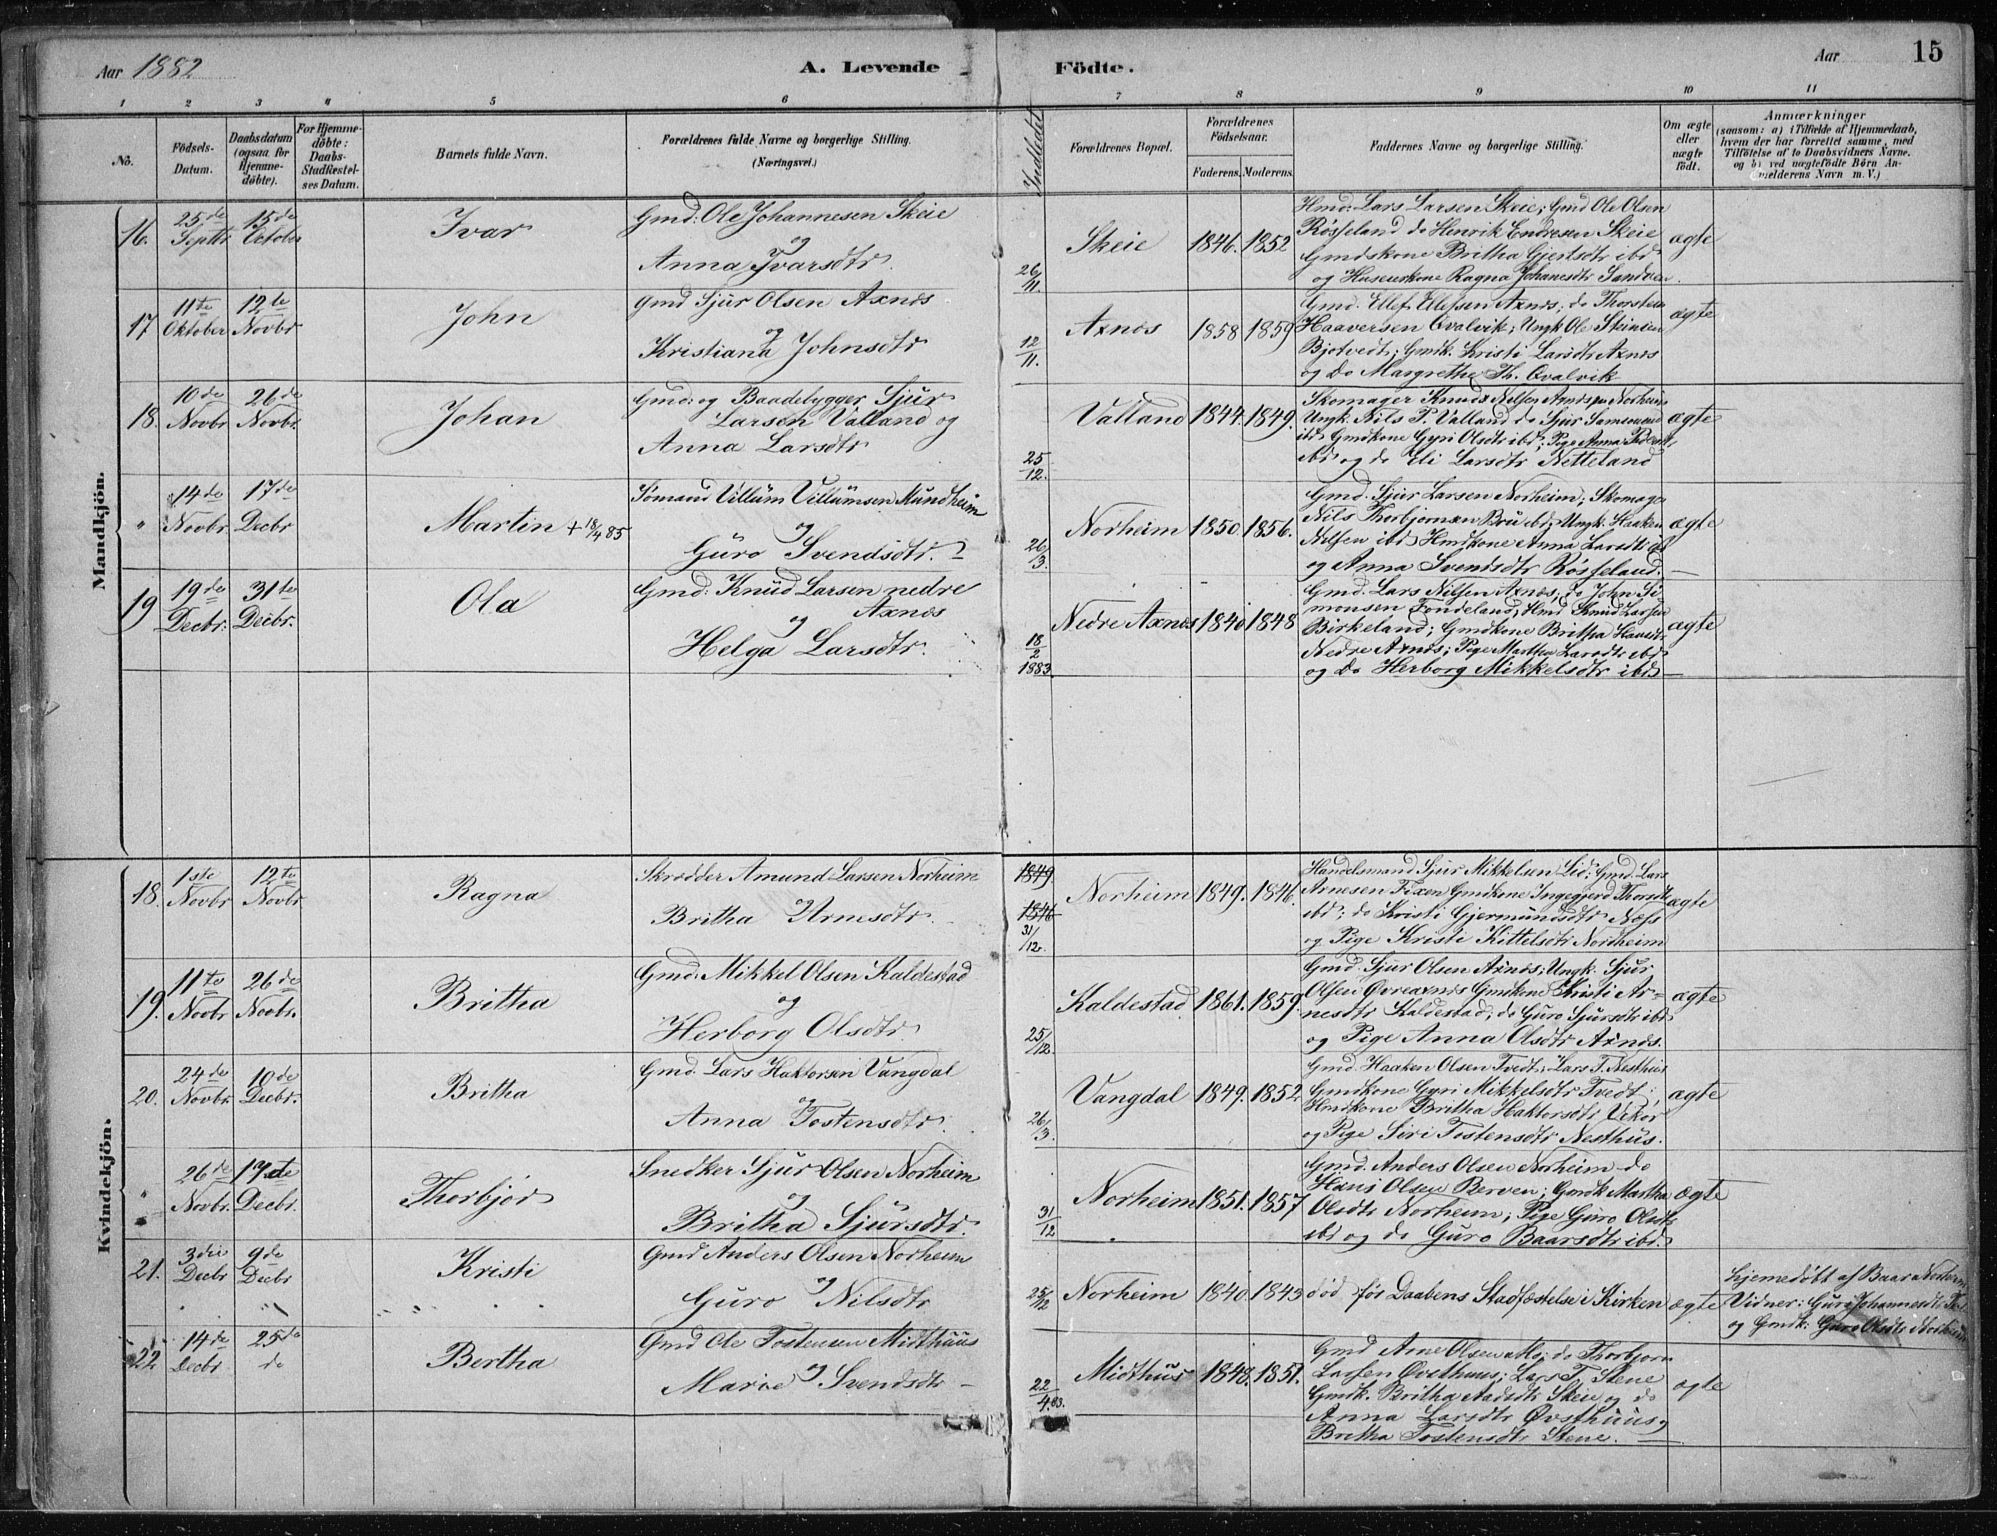 Aar 1882
A. Levende Födte.
Aar
15
1 2 3 4 5 6 7 8 9 10 11
No.
Födsels-Datum.
Daabsdatum (ogsaa for Hjemme-döbte).
For Hjemme-döbte: Daabs-Stadfæstel-ses Datum.
Barnets fulde Navn.
Forældrenes fulde Navne og borgerlige Stilling. (Næringsvei.)
Indledet
Forældrenes Bopæl.
Forældrenes Födselsaar.
Faderens. Moderens.
Faddernes Navne og borgerlige Stilling.
Om ægte eller uægte födt.
Anmærkninger
(saasom: a) i Tilfælde af Hjemmedaab,
hvem der har forrettet samme, med
Tilföielse af to Daabsvidners Navne.
og b) ved uægtefödte Börn An-
melderens Navn m. V.)
Mandkjön.
16. 25de Septbr 15de October
Ivar
Gmd: Ole Johannesen Skeie
og
Anna Ivarsdtr.
26/11.
Skeie 1846. 1852
Hmd: Lars Larsen Skeie; Gmd Ole Olsen
Røsseland do Henrik Endresen Skeie
Gmdskone Britha Gjertsdtr ibd
og Huseierskone Ragna Johanesdtr Sandven.
ægte
17. 11te Oktober 12te Novbr
John
Gmd Sjur Olsen Axnes
og
Kristiana Johnsdtr
12/11.
Axnes 1858 1859
Gmd. Ellef Ellefsen Axnes; do Thorstein
Haaversen Qvalvik; Ungk Ole Steinsen
Bjotvedt; Gmdk. Kristi Larsdtr Axnes
og do Margrethe Th. Qvalvik
ægte
18. 10de Novbr 26de Novbr.
Johan
Gmd: og Baadebygger Sjur
Larsen Valland og
Anna Larsdtr
25/12.
Valland 1844. 1849.
Skomager Knud Nilsen Norheim
Ungk. Nils P. Valland do Sjur
ibd Gmdkone Gyri Olsdtr ibd; Pige Anna Pedersd
ibd og do Eli Larsdtr Netteland
ægte
" 14de Novbr. 17de Decbr
Martin + 18/4 85
Sømand Villum Villumsen Mundheim
og
Guro Svendsdtr.
26/3.
Norheim 1850. 1856.
Gmd. Sjur Larsen Norheim; Skomager
Nils Thorbjornsen Bru ibd; Ungk. Haaken
Nilsen ibd Hmdkone Anna Larsdtr ibd
og Anna Svendsdtr Røsseland.
ægte
19 19de Decbr. 31te Decbr.
Ola
Gmd: Knud Larsen nedre
Axnes
og
Helga Larsdtr.
18/2 1883.
Nedre Axnes 1840. 1848
Gmd. Lars Nilsen Axnes, do John Si
monsen Tondeland; Hmd Knud Larsen
Birkeland; Gmdkone Britha Hansdtr
Nedre Axnes; Pige Martha Larsdtr ibd
og do Herborg Mikkelsdtr ibd
ægte
Kvindekjön.
18. 1ste Novbr 12te Novbr.
Ragna
Skrædder Amund Larsen Norheim
og
Britha Arnesdtr.
1849.
1846
31/12.
Norheim 1849. 1846.
Handelsmand Sjur Mikkelsen Lid; Gmd. Lars
Arnesen Fixen Gmdkone Ingegjerd Thorsdtr
ibd; do Kristi Gjermundsdtr Næss
og Pige Kristi Kittelsdtr Nordheim
ægte
19. 11te Novbr 26de Novbr.
Britha
Gmd: Mikkel Olsen Kaldestad
og
Herborg Olsdtr.
25/12.
Kaldestad 1861. 1859.
Gmd. Sjur Olsen Axnes; Ungk. Sjur
Olsen Øvreaxnes Gmdkone Kristi Ar-
nesdtr Kaldestad; do Guro Sjursdtr ibd
og Pige Anna Olsdtr Axnes.
ægte
20. 24de Novbr. 10de Decbr.
Britha
Gmd. Lars Haktorsen Vangdal
og
Anna Tostensdtr.
26/3.
Vangdal 1849. 1852
Gmd. Haaken Olsen Tvedt; Lars T. Nesthus
Gmdkone Gyri Mikkelsdtr Tvedt;
Hmdkone Britha Haktorsdtr Vikør
og Pige Siri Tostensdtr Nesthus.
ægte
" 26de Novbr. 17de Decbr.
Thorbjør
Snedker Sjur Olsen Norheim
og
Britha Sjursdtr.
31/12
Norheim 1851. 1857
Gmd. Anders Olsen Norheim do
Hans Olsen Berven; Gmdk Martha
Olsdtr Norheim; Pige Guro Olsdtr
ibd og do Guro Baarsdtr ibd.
ægte
21. 3die Decbr 9de Decbr
Kristi
Gmd Anders Olsen Norheim
og
Guro Nilsdtr
25/12
Norheim 1840. 1843
død før Daabens Stadfæstelse i Kirken
ægte
hjemedøbt af Baar Norheim
Vidner: Guri Johannesdtr
og Gmdk: Guro Olsdtr Norheim
22 14de Decbr 25de do
Bertha
Gmd Ole Tostensen Mitthuus
og
Marie Svendsdtr
22/4.83.
Midthus 1848. 1851.
Gmd Arne Olsen Mo; do Thorbjorn
Larsen Øvsthuus; Lars T. Stene
Gmdk. Britha Aadsdtr Skeie og do
Anna Larsdtr Øvsthuus og
Britha Tostensdtr Stene.
ægte